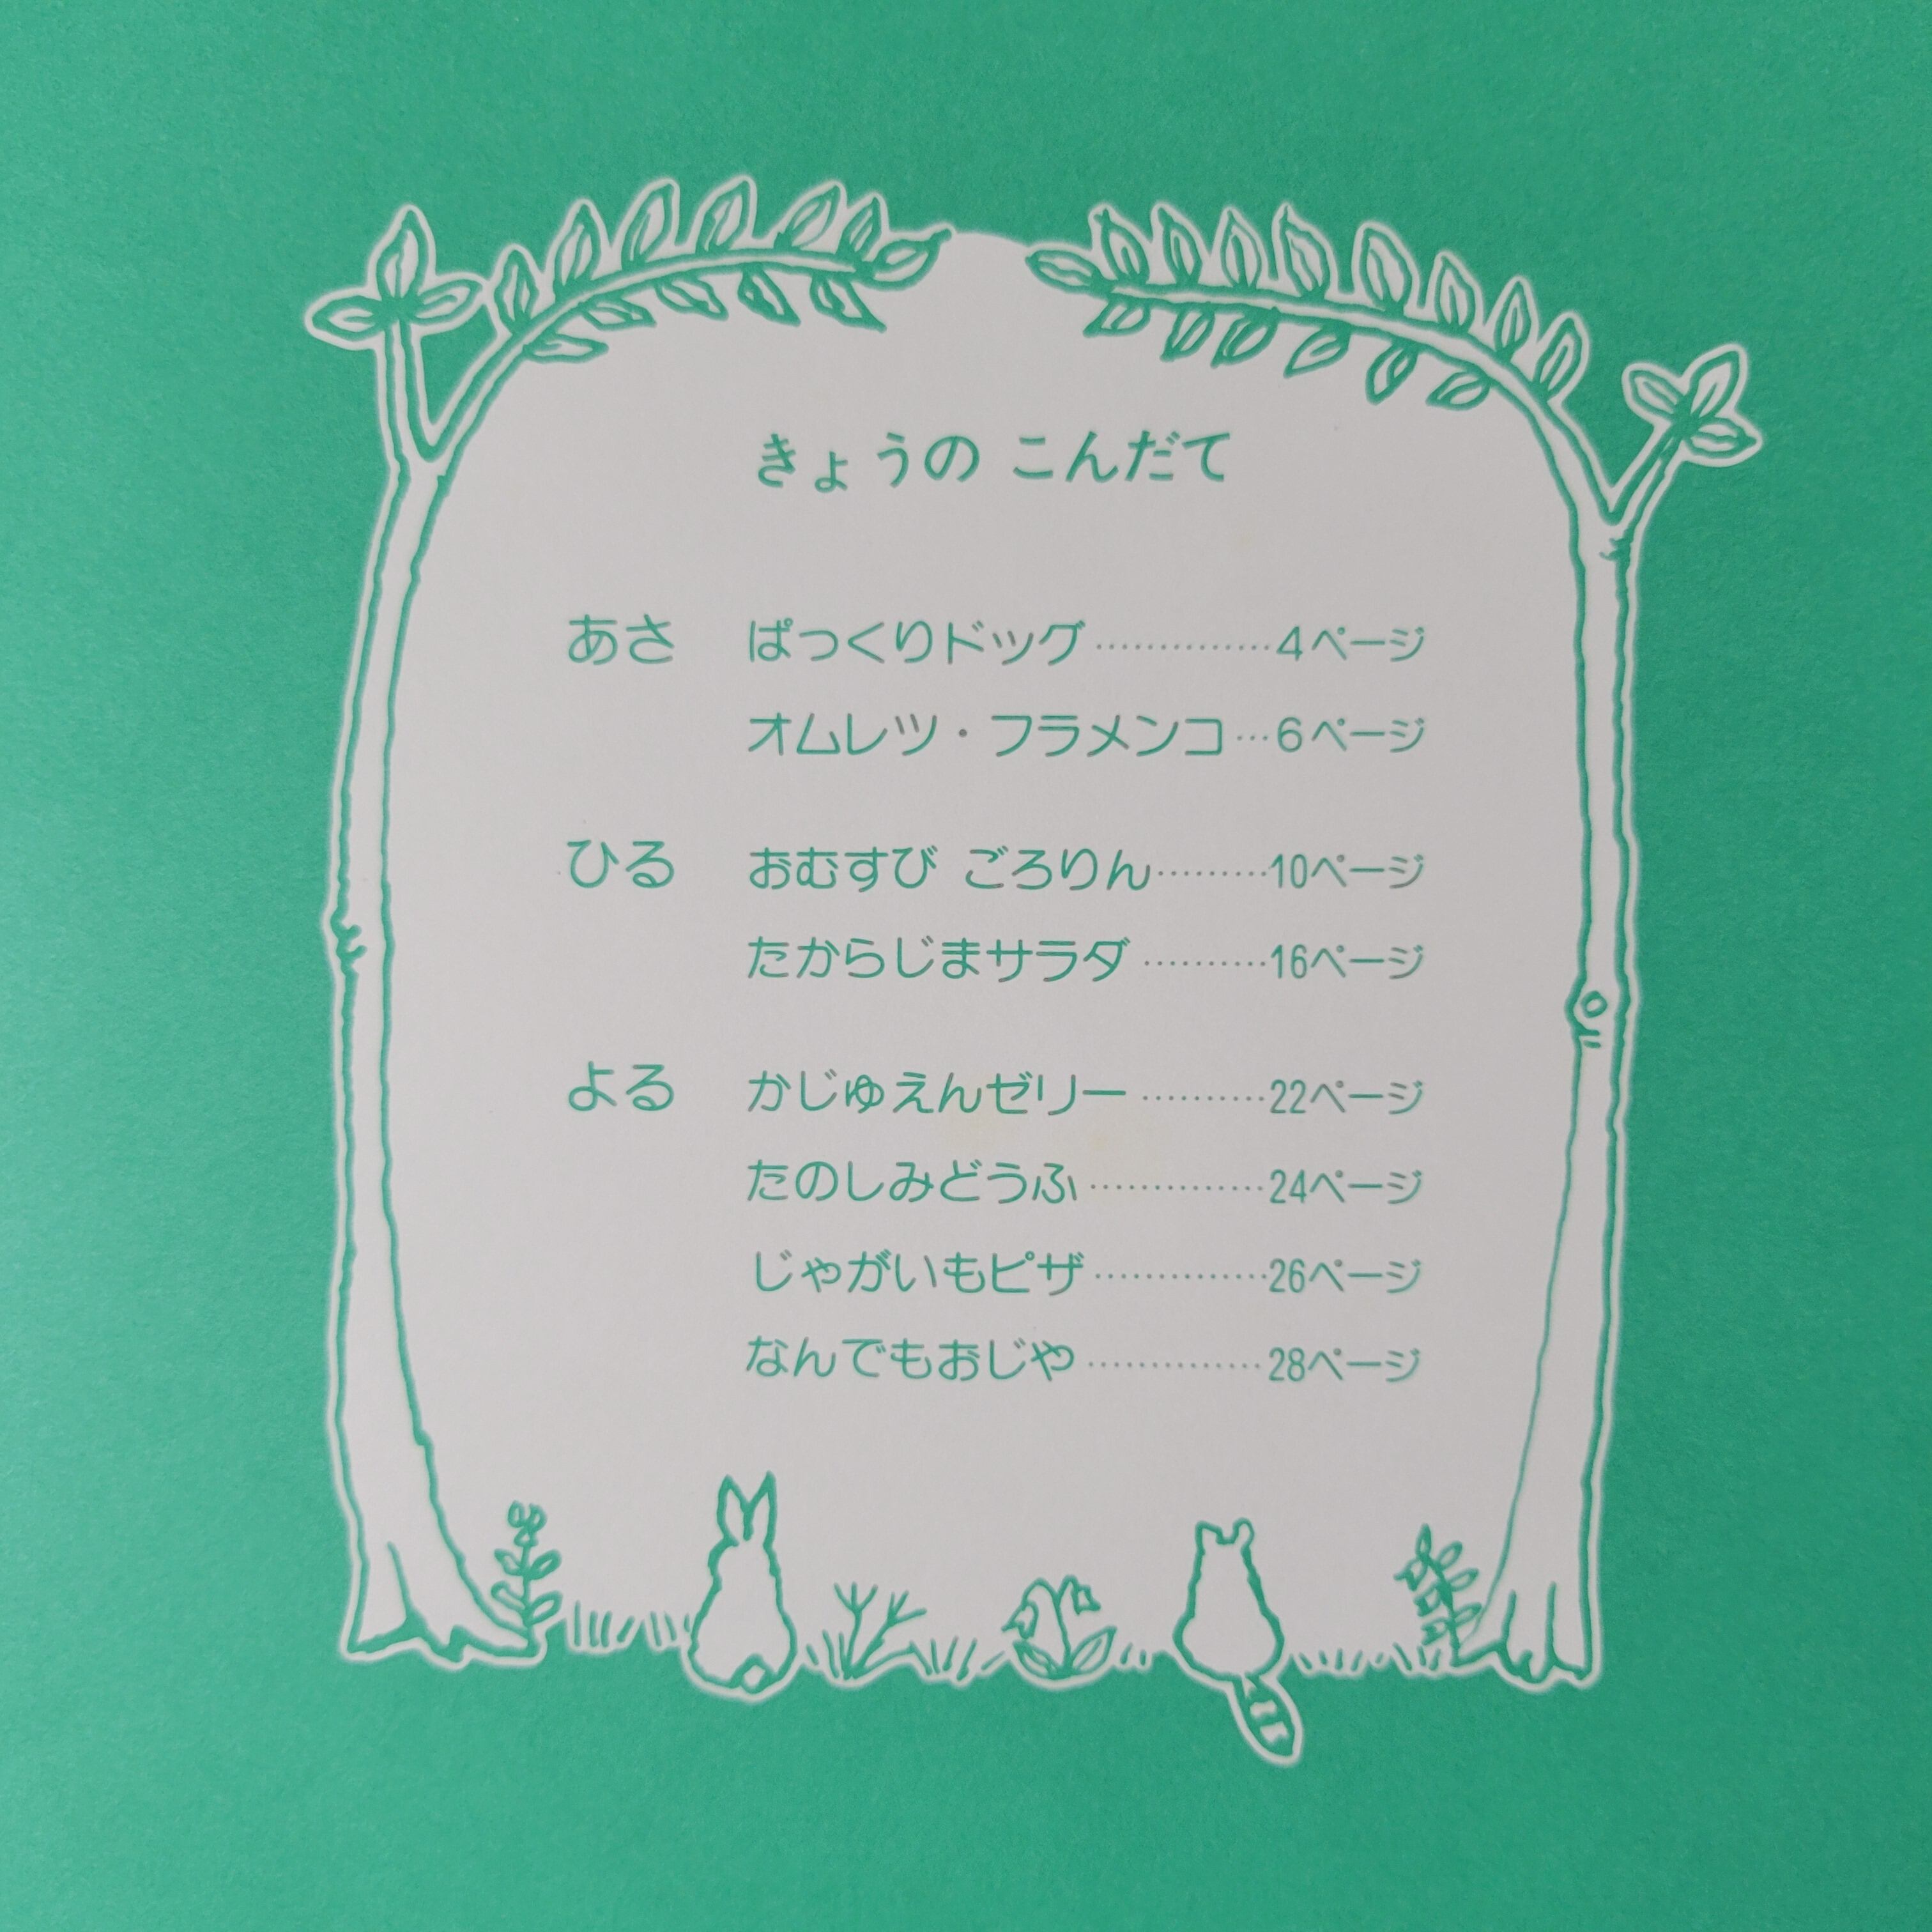 きょうの こんだて
あさ ぱっくりドッグ……………4ページ
オムレツ・フラメンコ…6ページ
ひる おむすび ごろりん………10ページ
たからじまサラダ…………16ページ
よる かじゅえんゼリー…………22ページ
たのしみどうふ……………24ページ
じゃがいもピザ……………26ページ
なんでもおじや……………28ページ